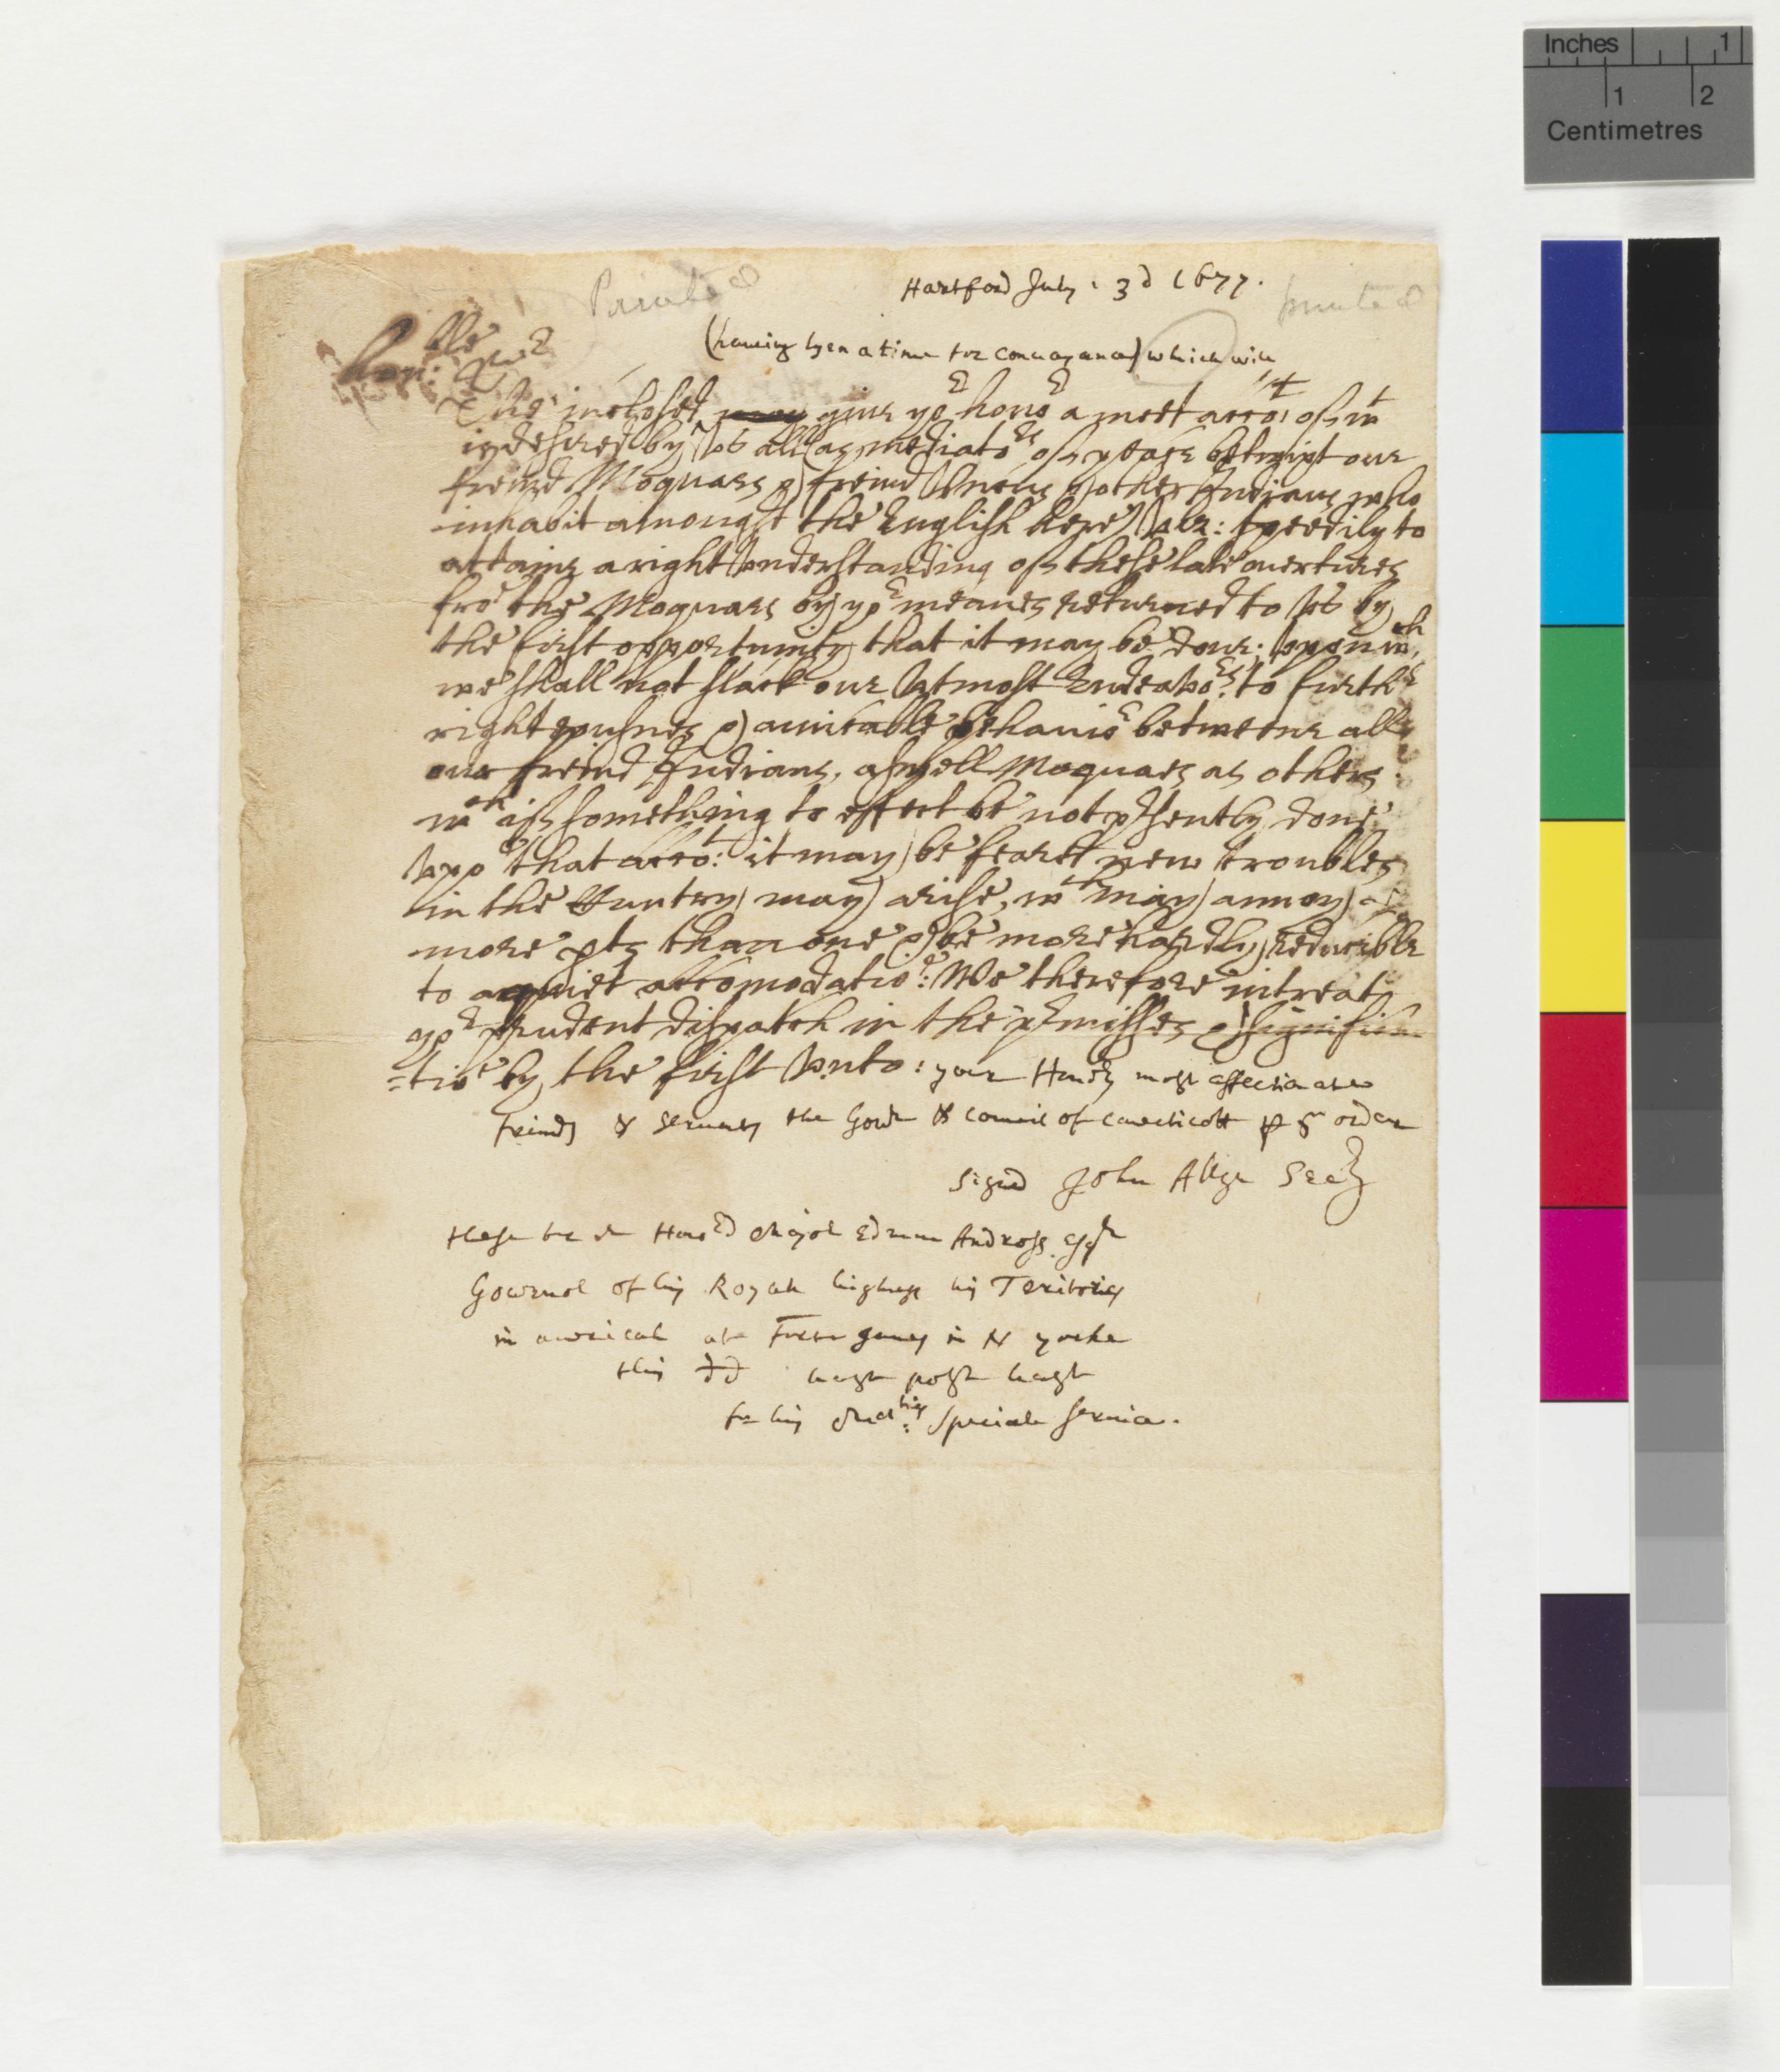 Inches 1
1 2
Centimetres
Printed
Hartford July : 3d 1677.
printed
(haueing lyen a time for conuayance) which will
honble: Sr
The inclosed may giue yor honor a meet accot: of wt
is desired by us all (as mediators of peace betwixt our
freind Moquaes & freind Indians & other Indians who
inhabit amongst the English here) viz: speedily to
attaine a right understanding of these late ouertures
fro the Moquaes by yor meanes returned to us by
the first opportunity that it may be done: upon wch
we shall not slack our utmost Endeauors: to furthr
righteousnes & amicable behauior betweene all
our freind Indians, aswell Moquaes as others
wch if something to effect be not prsently done
upo that acco:t it may be feard new troubles
in the Cuntry may arise, wch may annoy
more pts than one & be more hardly reducible
to a quiet accomodatio: We therefore intreat
yor prudent dispatch in the prmisses & significa
=tio by the first unto: your Honrs most affectionate
Freinds & seruants the Gour & councill of conecticott p sr order
signd John Allyn Secry
these be dr Honrd Major Edmun Andross esqr
Gouernor of his Royall highness his Teritories
in america at Forte James in N yorke
this dd hast post hast
for his Maties: speciall seruice.